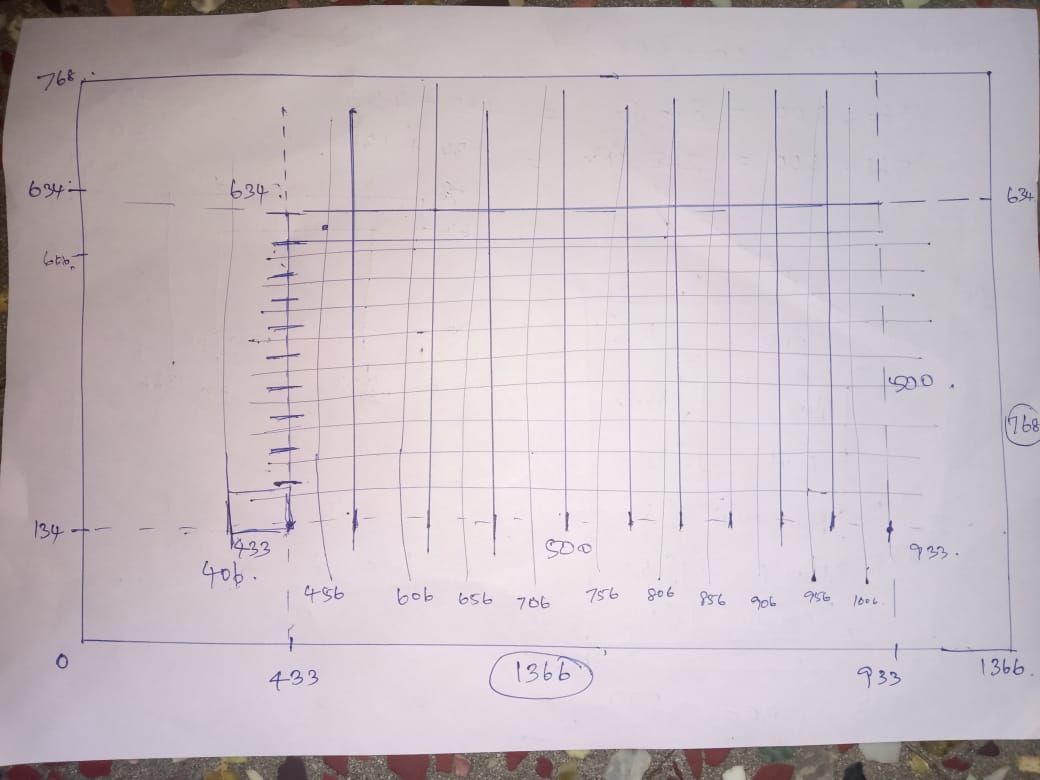 768
634
634
634
600
500
768
134
433
500
933
406
456
606
656
706
756
806
856
906
956
1006
0
433
1366
933
1366